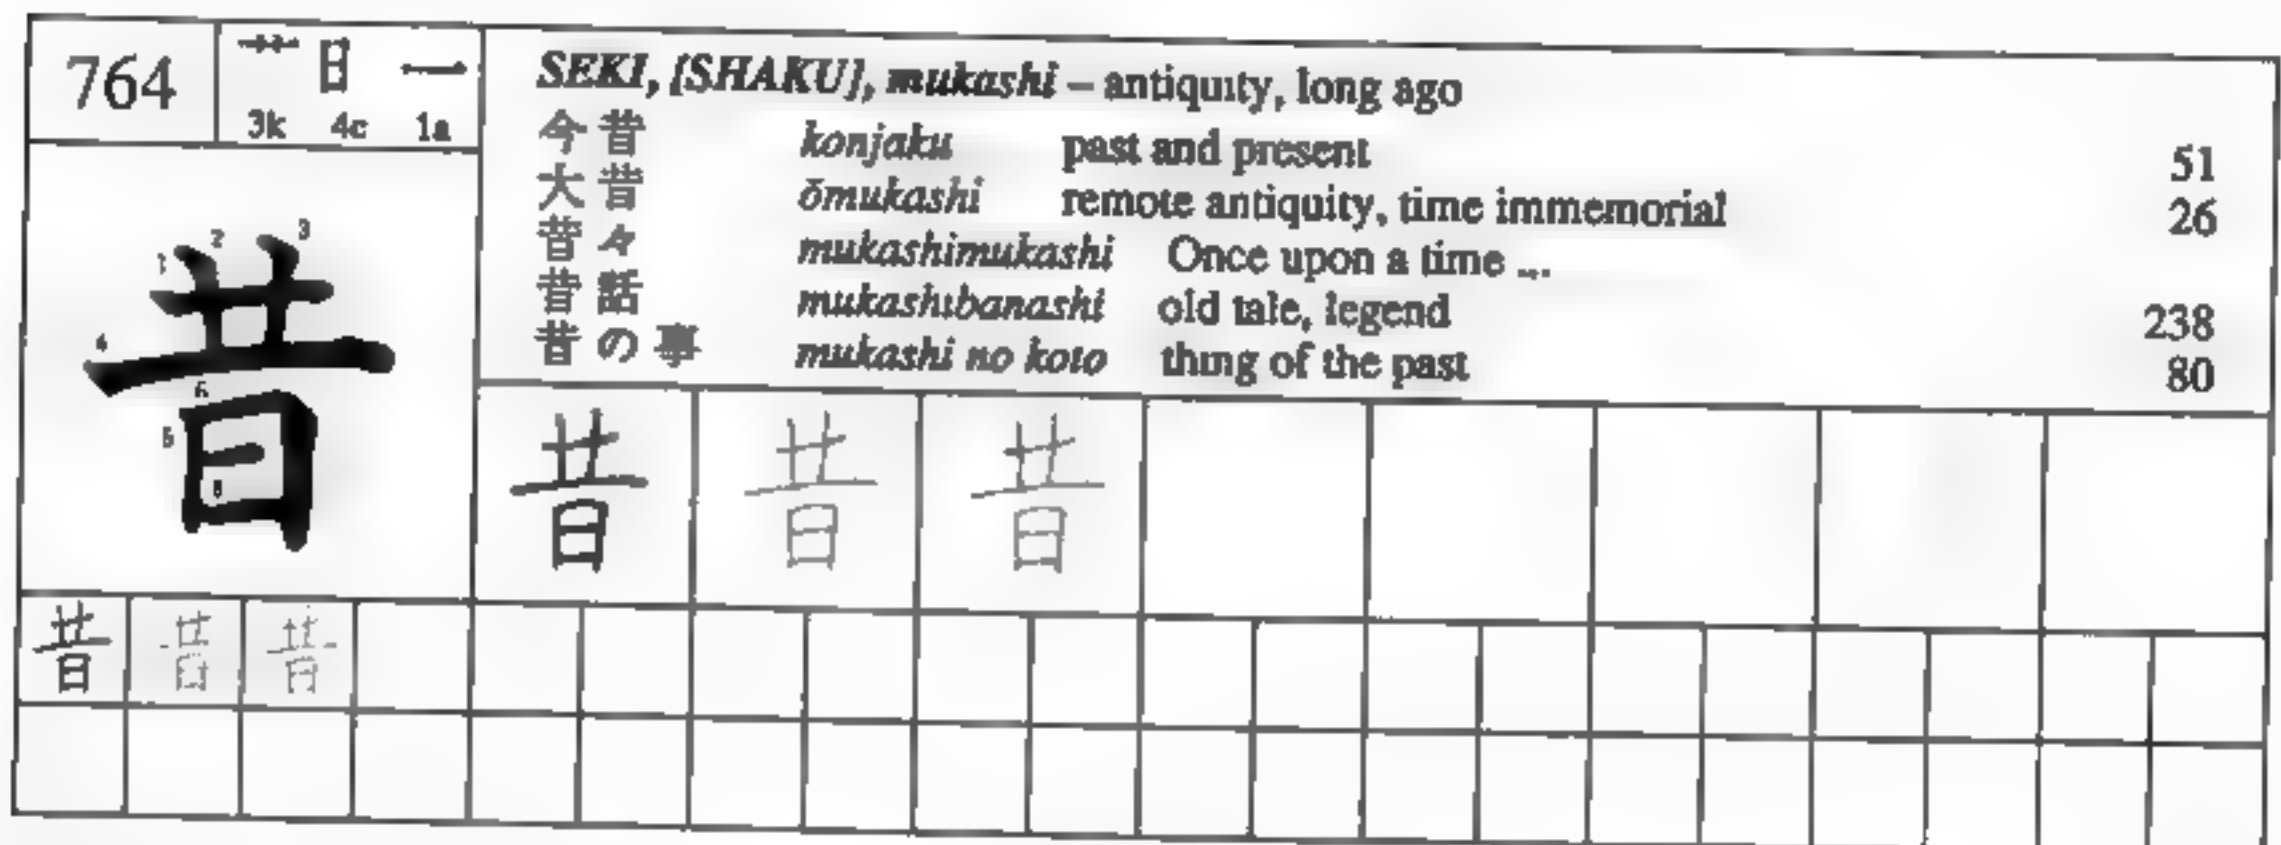 764
艹 日 一
3k 4c 1a
SEKI, [SHAKU], mukashi – antiquity, long ago
今昔 konjaku past and present 51
大昔 ōmukashi remote antiquity, time immemorial 26
昔々 mukashimukashi Once upon a time ...
昔話 mukashibanashi old tale, legend 238
昔の事 mukashi no koto thing of the past 80
1 2 3
昔
4
6
5
8
昔 昔 昔
昔 昔 昔